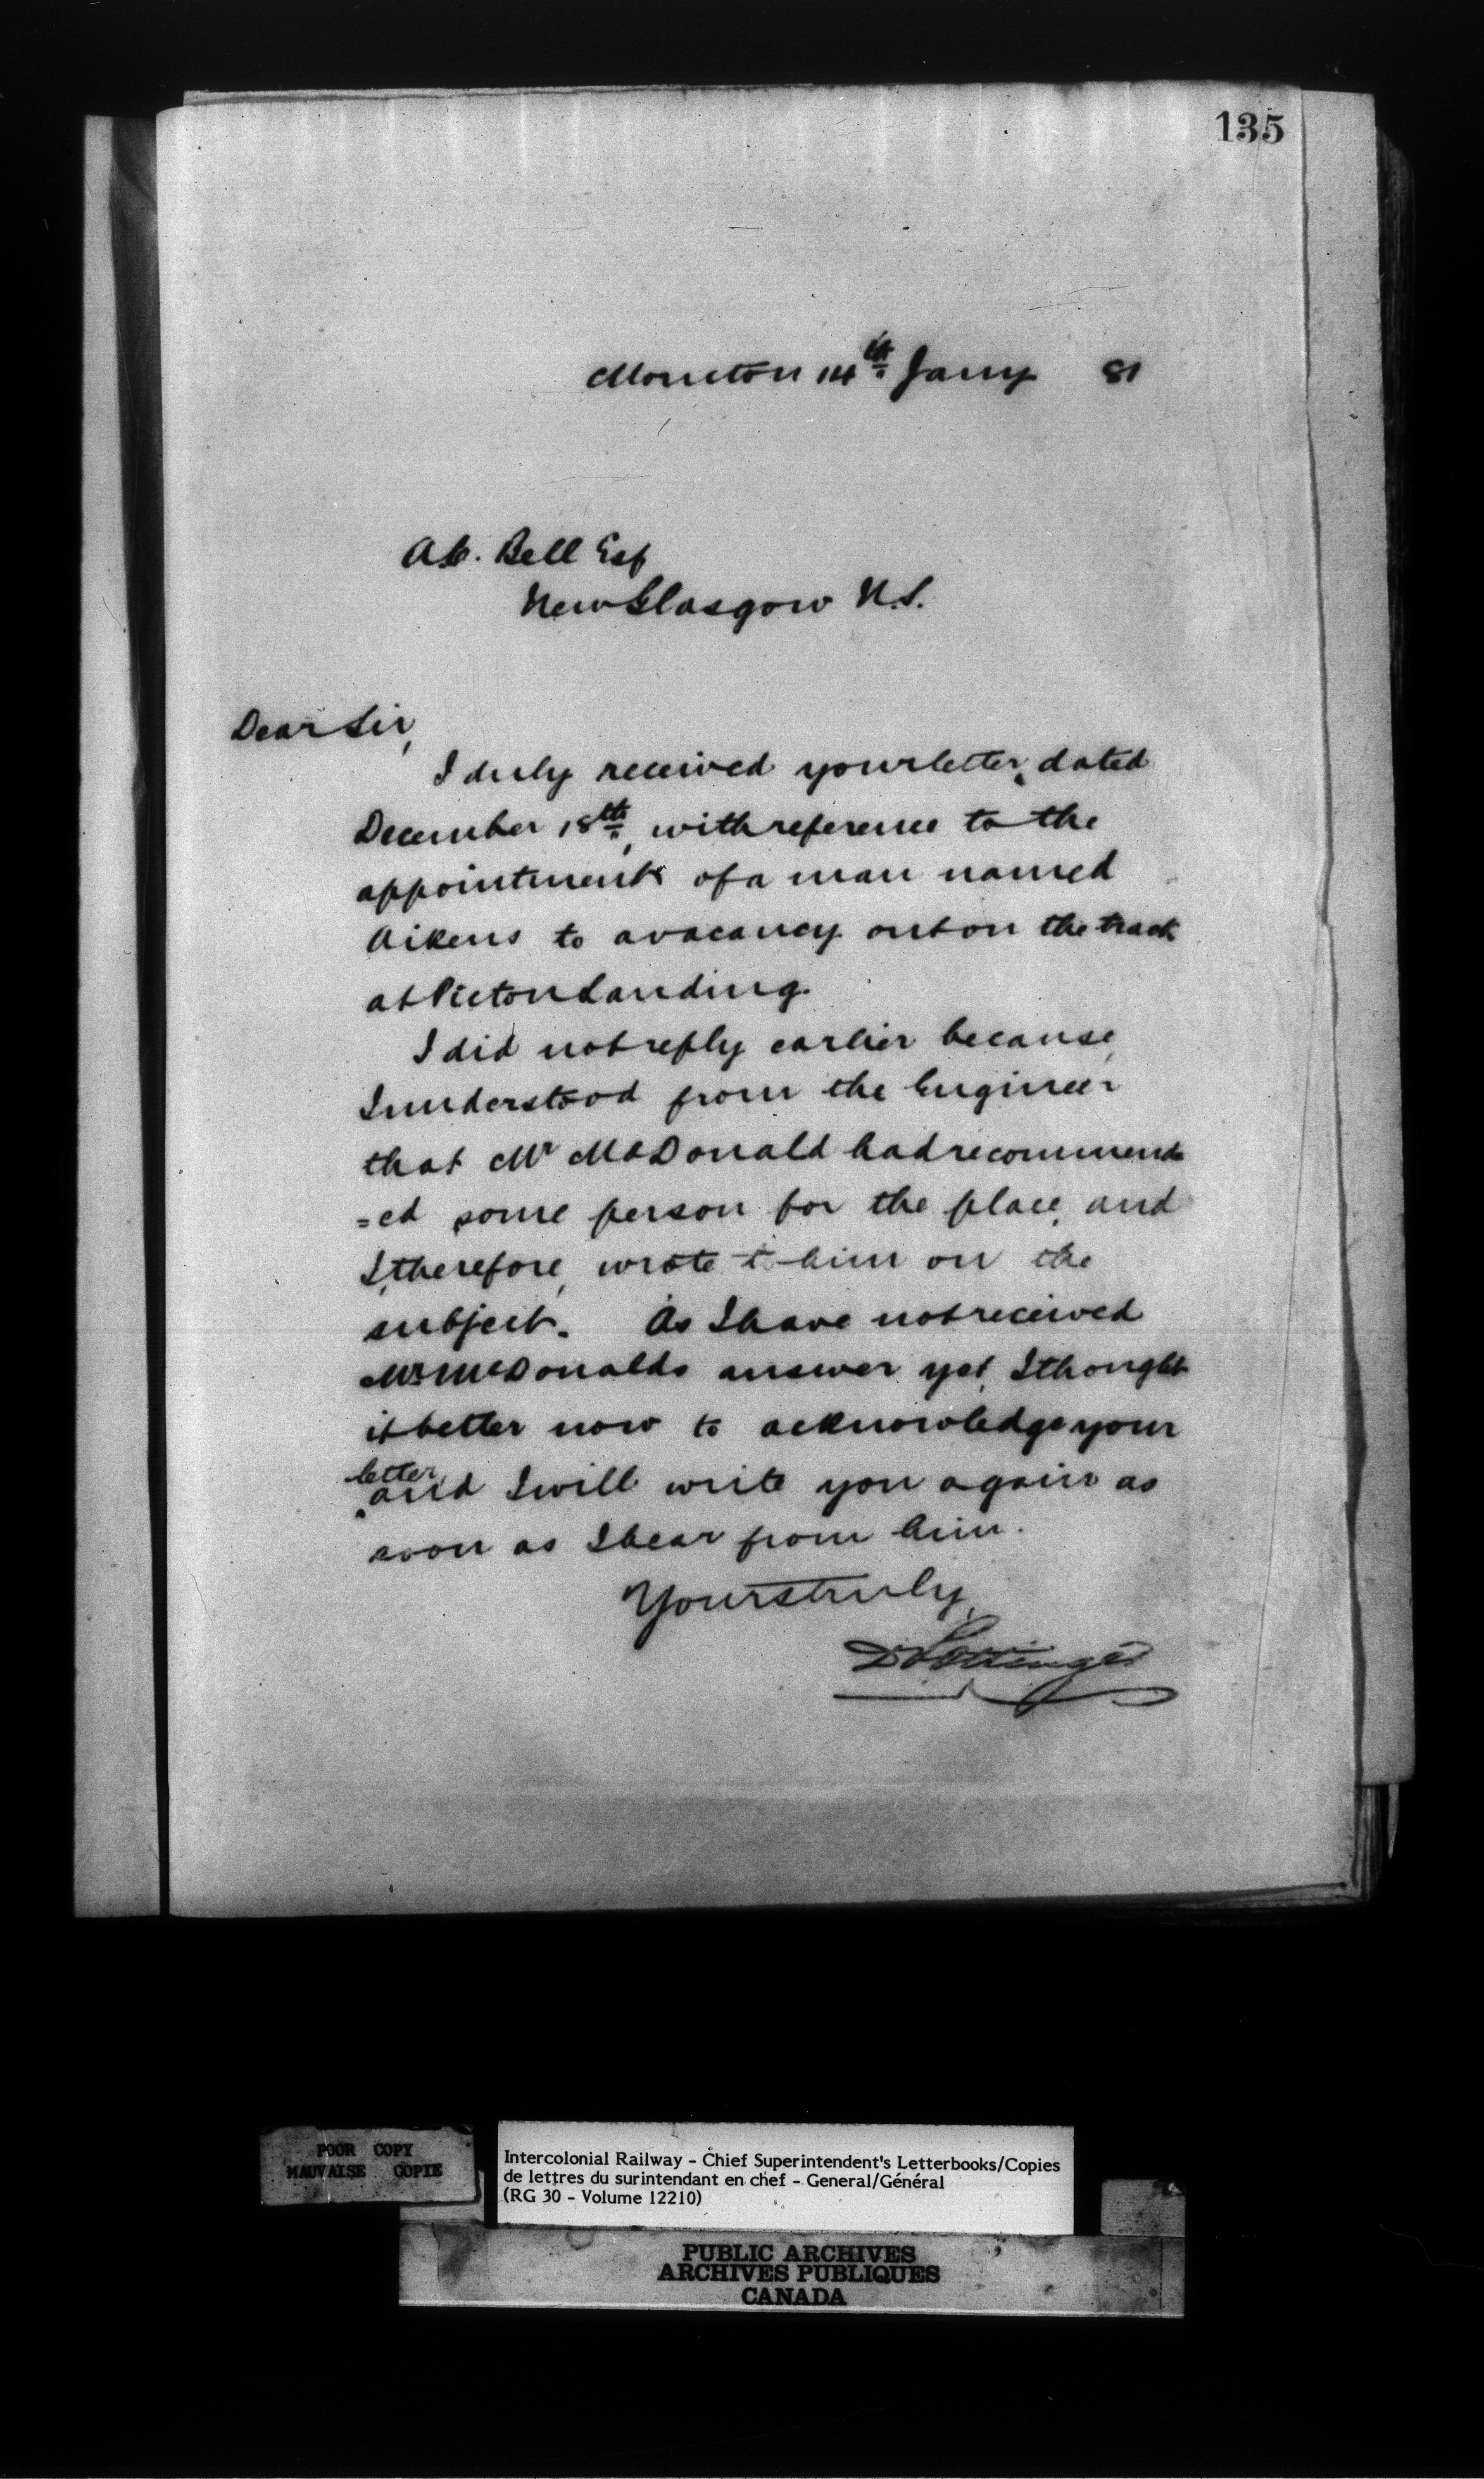 135
Moncton 14th Jany 81
A.C. Bell Esq
New Glasgow N.S.
Dear Sir,
I duly received your letter, dated
December 18th, with reference to the
appointment of a man named
Aikens to a vacancy out on the track
at Pictou Landing.
I did not reply earlier because,
I understood from the Engineer
that Mr McDonald had recommend
=ed some person for the place, and
I, therefore, wrote to him on the
subject. As I have not received
Mr McDonalds answer yet, I thought
it better now to acknowledge your
letter, and I will write you again as
soon as I hear from him.
Yours truly,
D Pottinger
POOR COPY
MAUVAISE COPIE
Intercolonial Railway - Chief Superintendent's Letterbooks/Copies
de lettres du surintendant en chef - General/Général
(RG 30 - Volume 12210)
PUBLIC ARCHIVES
ARCHIVES PUBLIQUES
CANADA